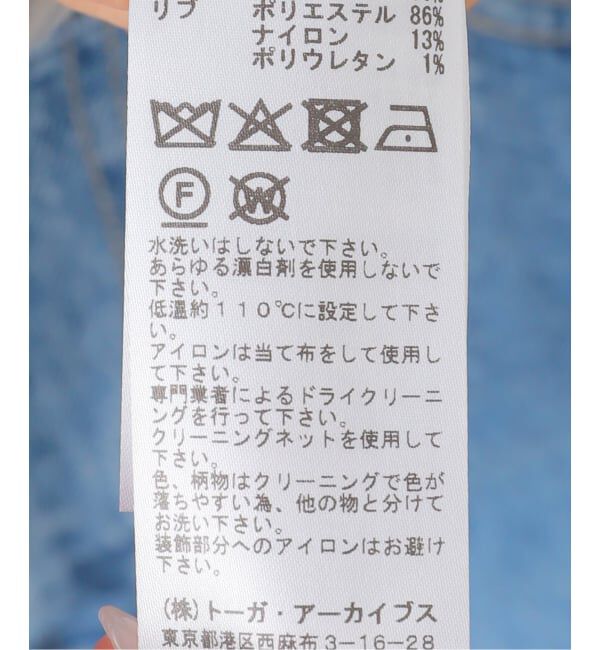 リブ ポリエステル 86%
ナイロン 13%
ポリウレタン 1%
F W
水洗いはしないで下さい。
あらゆる漂白剤を使用しないで
下さい。
低温約110℃に設定して下さ
い。
アイロンは当て布をして使用し
て下さい。
専門業者によるドライクリーニ
ングを行って下さい。
クリーニングネットを使用して
下さい。
色、柄物はクリーニングで色が
落ちやすい為、他の物と分けて
お洗い下さい。
装飾部分へのアイロンはお避け
下さい。
(株)トーガ・アーカイブス
東京都港区西麻布3-16-28